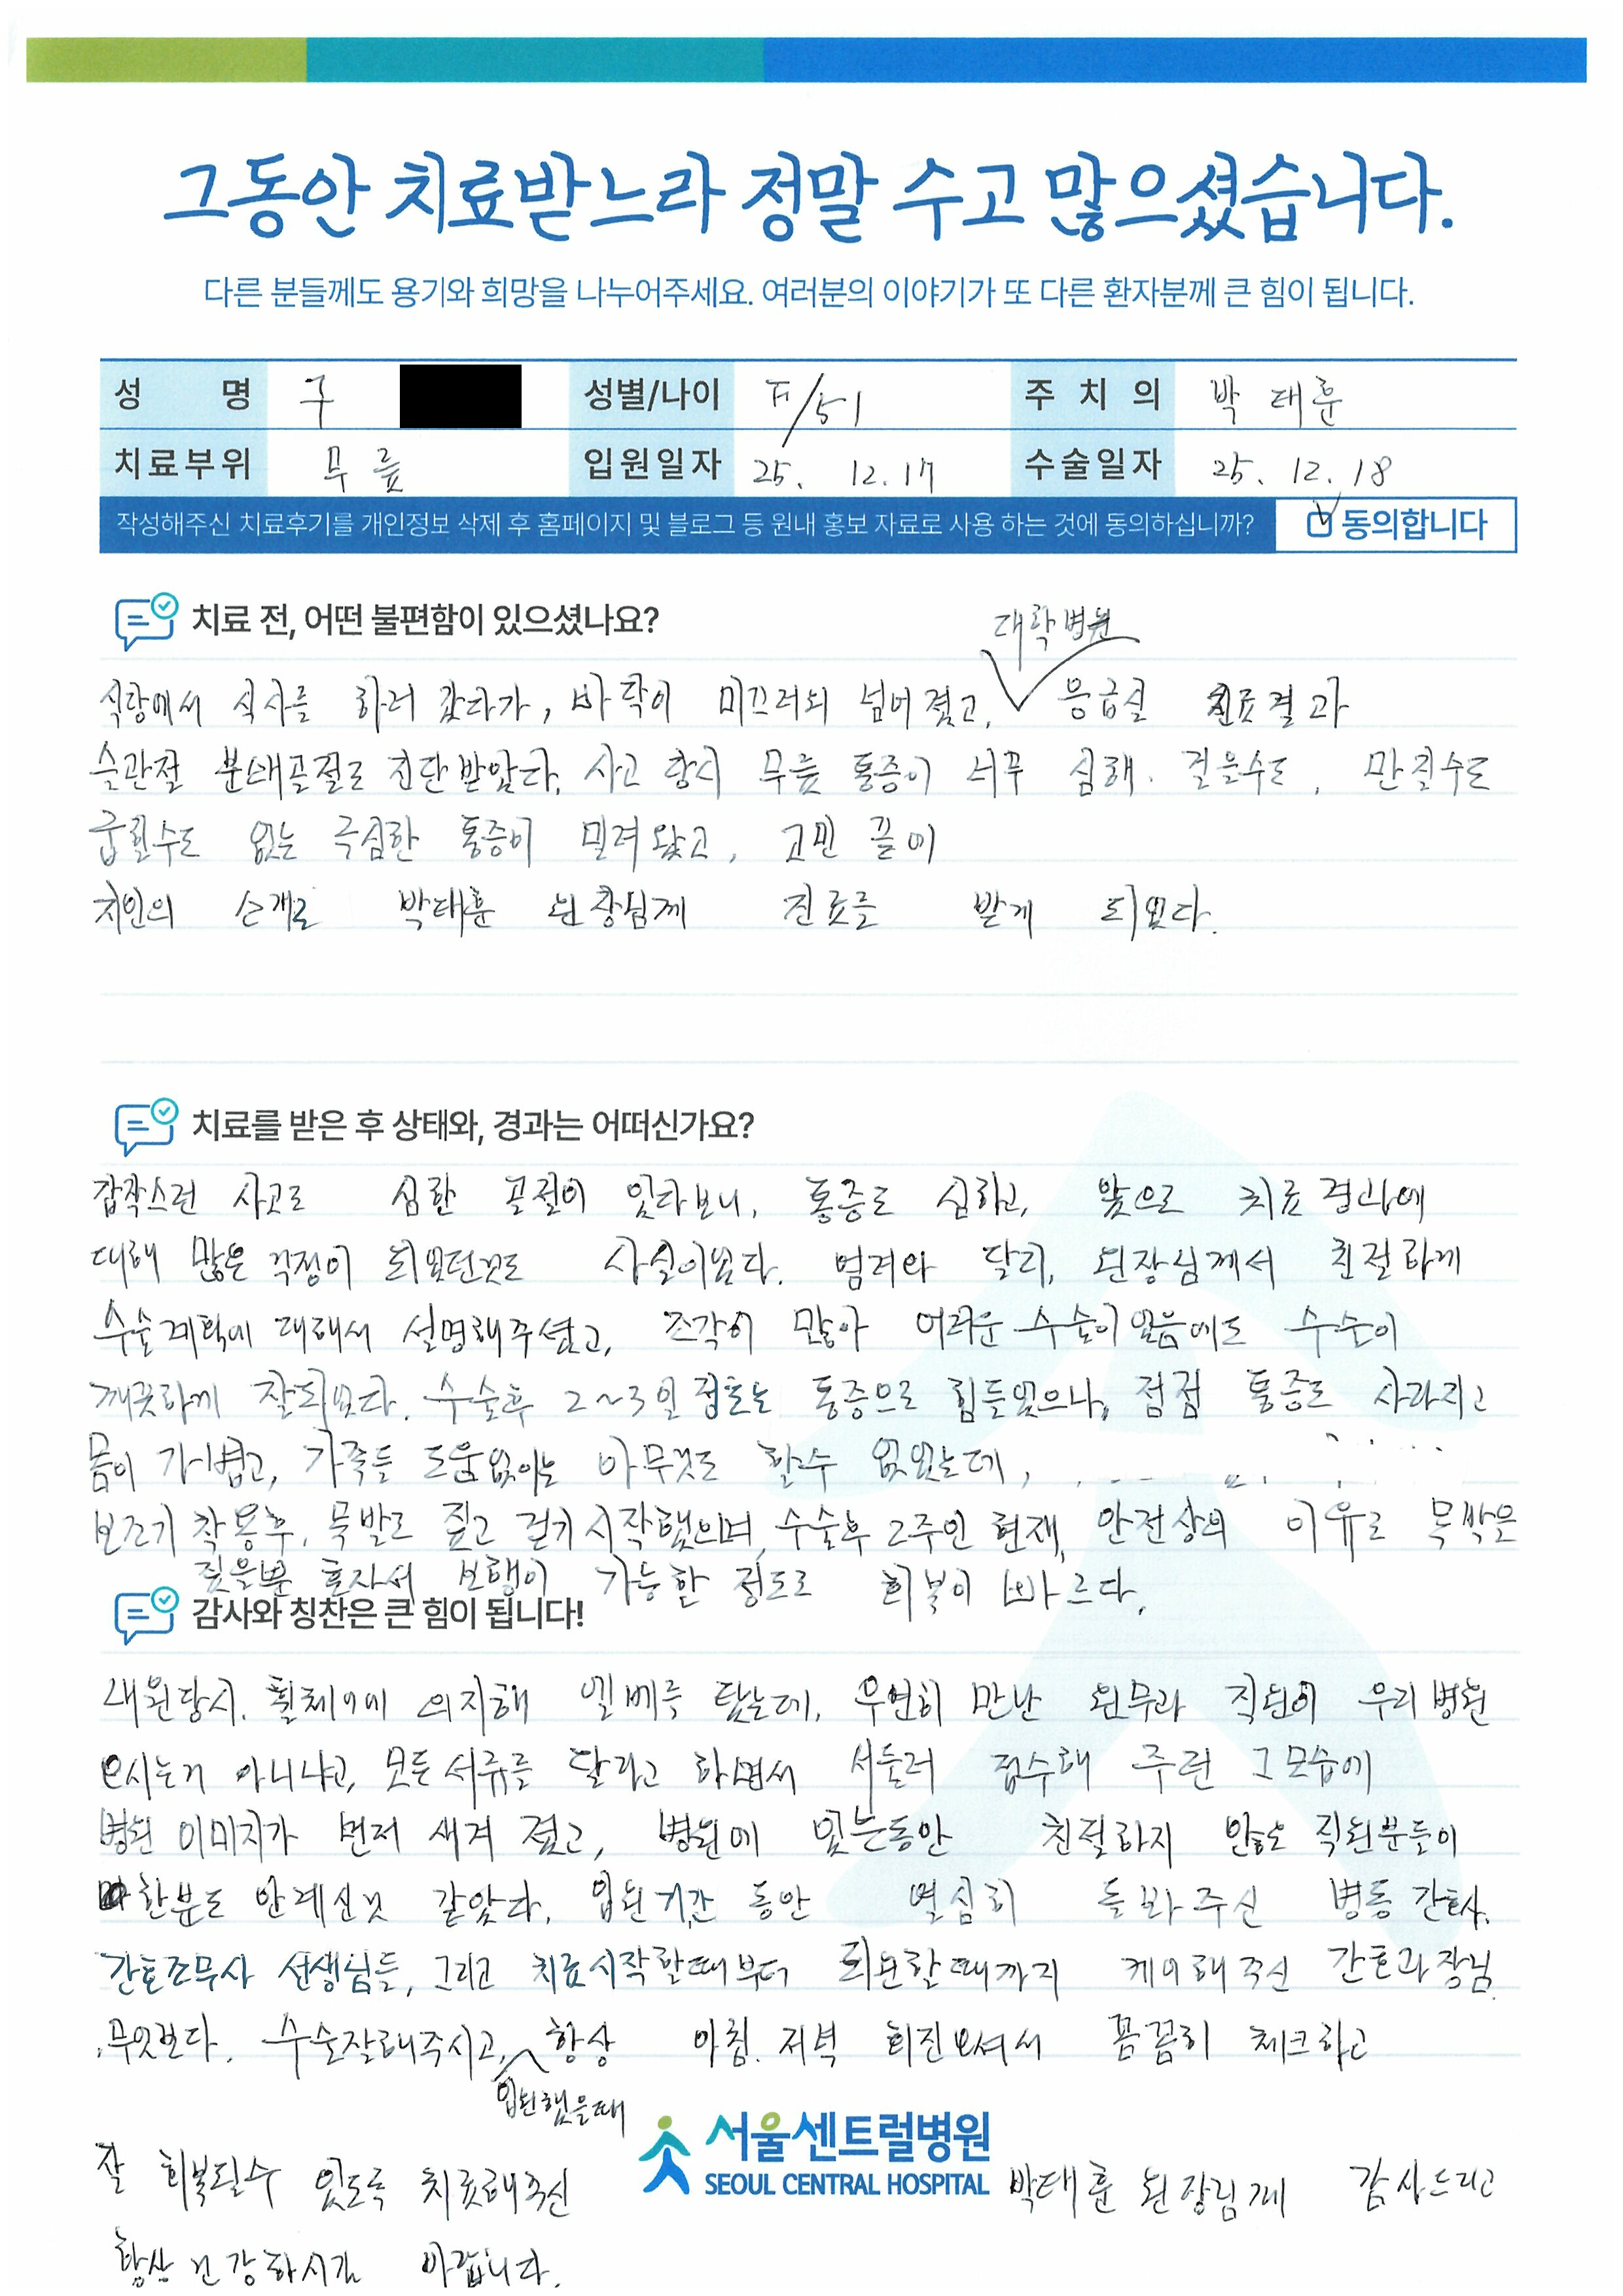 그동안 치료받느라 정말 수고 많으셨습니다.
다른 분들께도 용기와 희망을 나누어주세요. 여러분의 이야기가 또 다른 환자분께 큰 힘이 됩니다.
성 명 구 성별/나이 F/51 주 치 의 박 대훈
치료부위 무릎 입원일자 25. 12. 17 수술일자 25. 12. 18
작성해주신 치료후기를 개인정보 삭제 후 홈페이지 및 블로그 등 원내 홍보 자료로 사용 하는 것에 동의하십니까? 동의합니다
치료 전, 어떤 불편함이 있으셨나요?
대학병원
식당에서 식사를 하러 갔다가, 바닥이 미끄러워 넘어졌고, 응급실 진료결과
슬관절 분쇄골절로 진단받았다. 사고 당시 무릎 통증이 너무 심해. 걸을수도, 만질수도
굽힐수도 없는 극심한 통증이 밀려왔고, 고민 끝에
지인의 소개로 박대훈 원장님께 진료를 받게 되었다.
치료를 받은 후 상태와, 경과는 어떠신가요?
갑작스런 사고로 심한 골절이 있다보니, 통증도 심하고, 앞으로 치료 경과에
대해 많은 걱정이 되었던것도 사실이었다. 염려와 달리, 원장님께서 친절하게
수술계획에 대해서 설명해주셨고, 조각이 많아 어려운 수술이었음에도 수술이
깨끗하게 잘되었다. 수술후 2~3일 정도는 통증으로 힘들었으나, 점점 통증도 사라지고
몸이 가볍고, 가족들 도움없이는 아무것도 할수 없었는데,
보조기 착용후, 목발로 짚고 걷기 시작했으며, 수술후 2주인 현재, 안전상의 이유로 목발을
짚을뿐 혼자서 보행이 가능할 정도로 회복이 빠르다.
감사와 칭찬은 큰 힘이 됩니다!
내원당시. 휠체어에 의지해 엘베를 탔는데, 우연히 만난 원무과 직원이 우리병원
오시는거 아니냐고, 모든서류를 달라고 하면서 서둘러 접수해 주던 그모습에
병원 이미지가 먼저 새겨 졌고, 병원에 있는동안 친절하지 않은 직원분들이
한분도 안계신것 같았다. 입원기간 동안 열심히 돌봐주신 병동 간호사.
간호조무사 선생님들, 그리고 치료시작할때부터 퇴원할때까지 케어해주신 간호과장님.
무엇보다. 수술잘해주시고, 항상 아침. 저녁 회진오셔서 꼼꼼히 체크하고
입원했을때
서울센트럴병원
SEOUL CENTRAL HOSPITAL
잘 회복될수 있도록 치료해주신 박대훈 원장님께 감사드리고
항상 건강하시길 바랍니다.